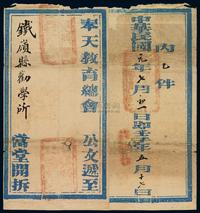 內乙件
中華民國元年七月初一日即壬子五月十七日
奉天教育總會 公文遞至
鐵嶺縣勸學所 當堂開拆